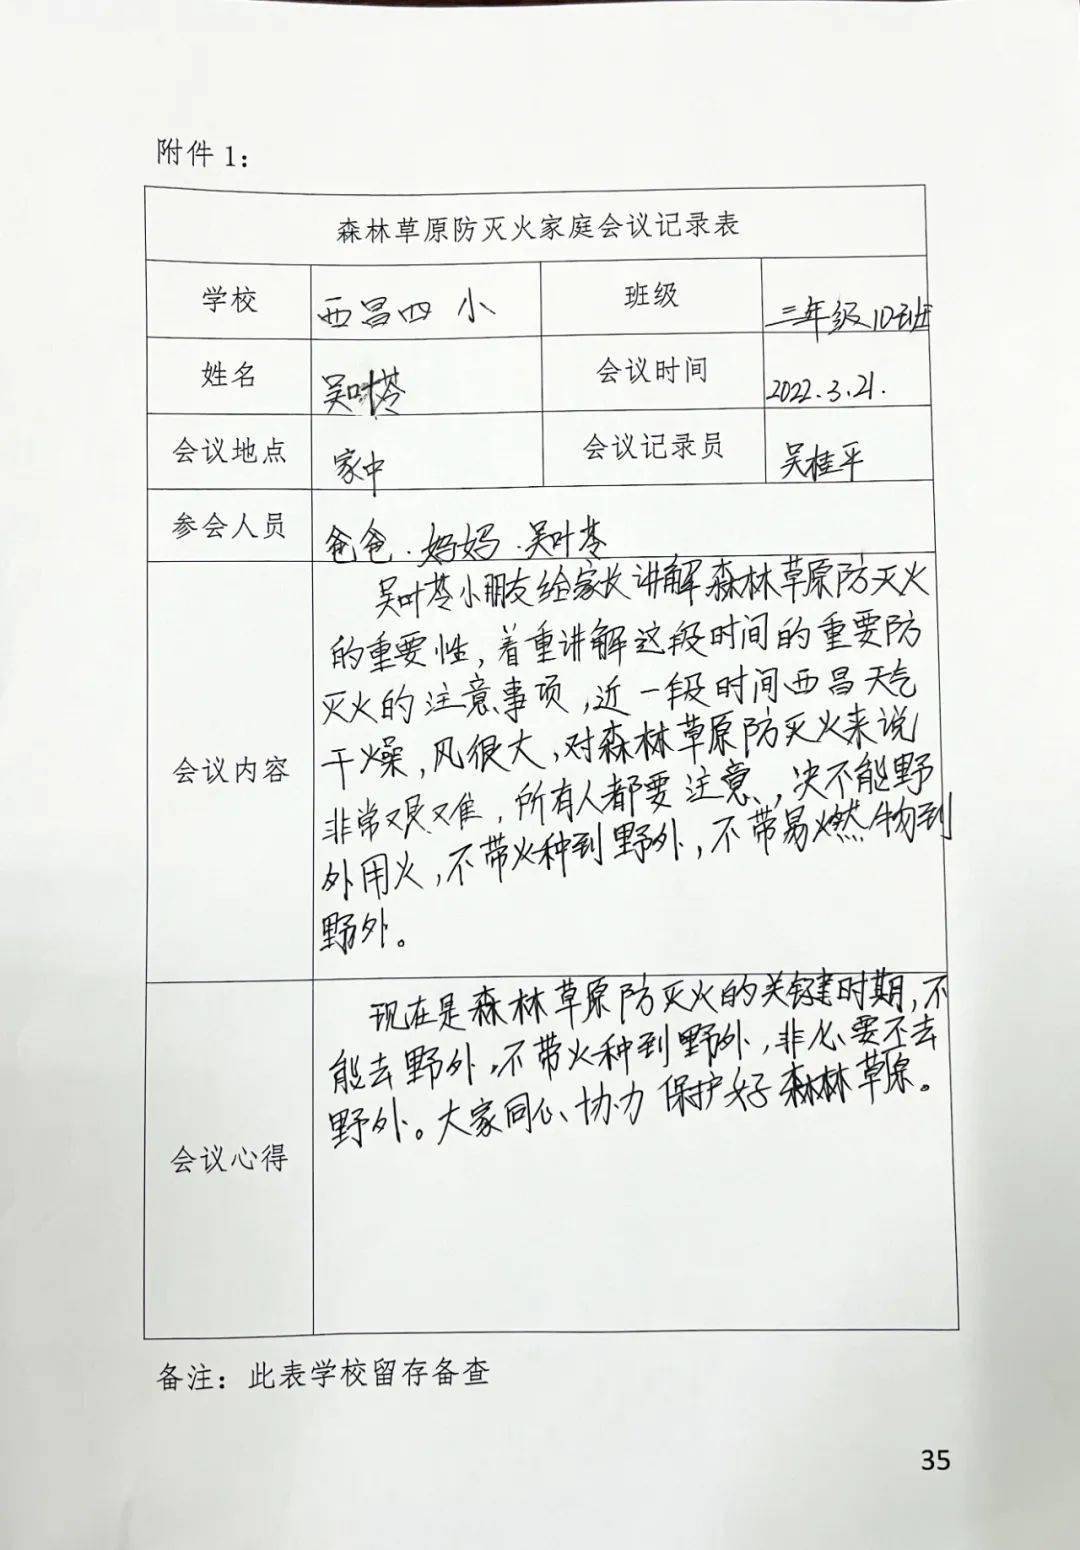 附件1：
森林草原防灭火家庭会议记录表
学校 西昌四小 班级 三年级10班
姓名 吴叶苓 会议时间 2022.3.21.
会议地点 家中 会议记录员 吴桂平
参会人员 爸爸.妈妈.吴叶苓
会议内容
吴叶苓小朋友给家长讲解森林草原防灭火
的重要性，着重讲解这段时间的重要防
灭火的注意事项，近一段时间西昌天气
干燥，风很大，对森林草原防灭火来说
非常艰难，所有人都要注意，决不能野
外用火，不带火种到野外，不带易燃物到
野外。
会议心得
现在是森林草原防灭火的关键时期，不
能去野外，不带火种到野外，非必要不去
野外。大家同心协力保护好森林草原。
备注：此表学校留存备查
35